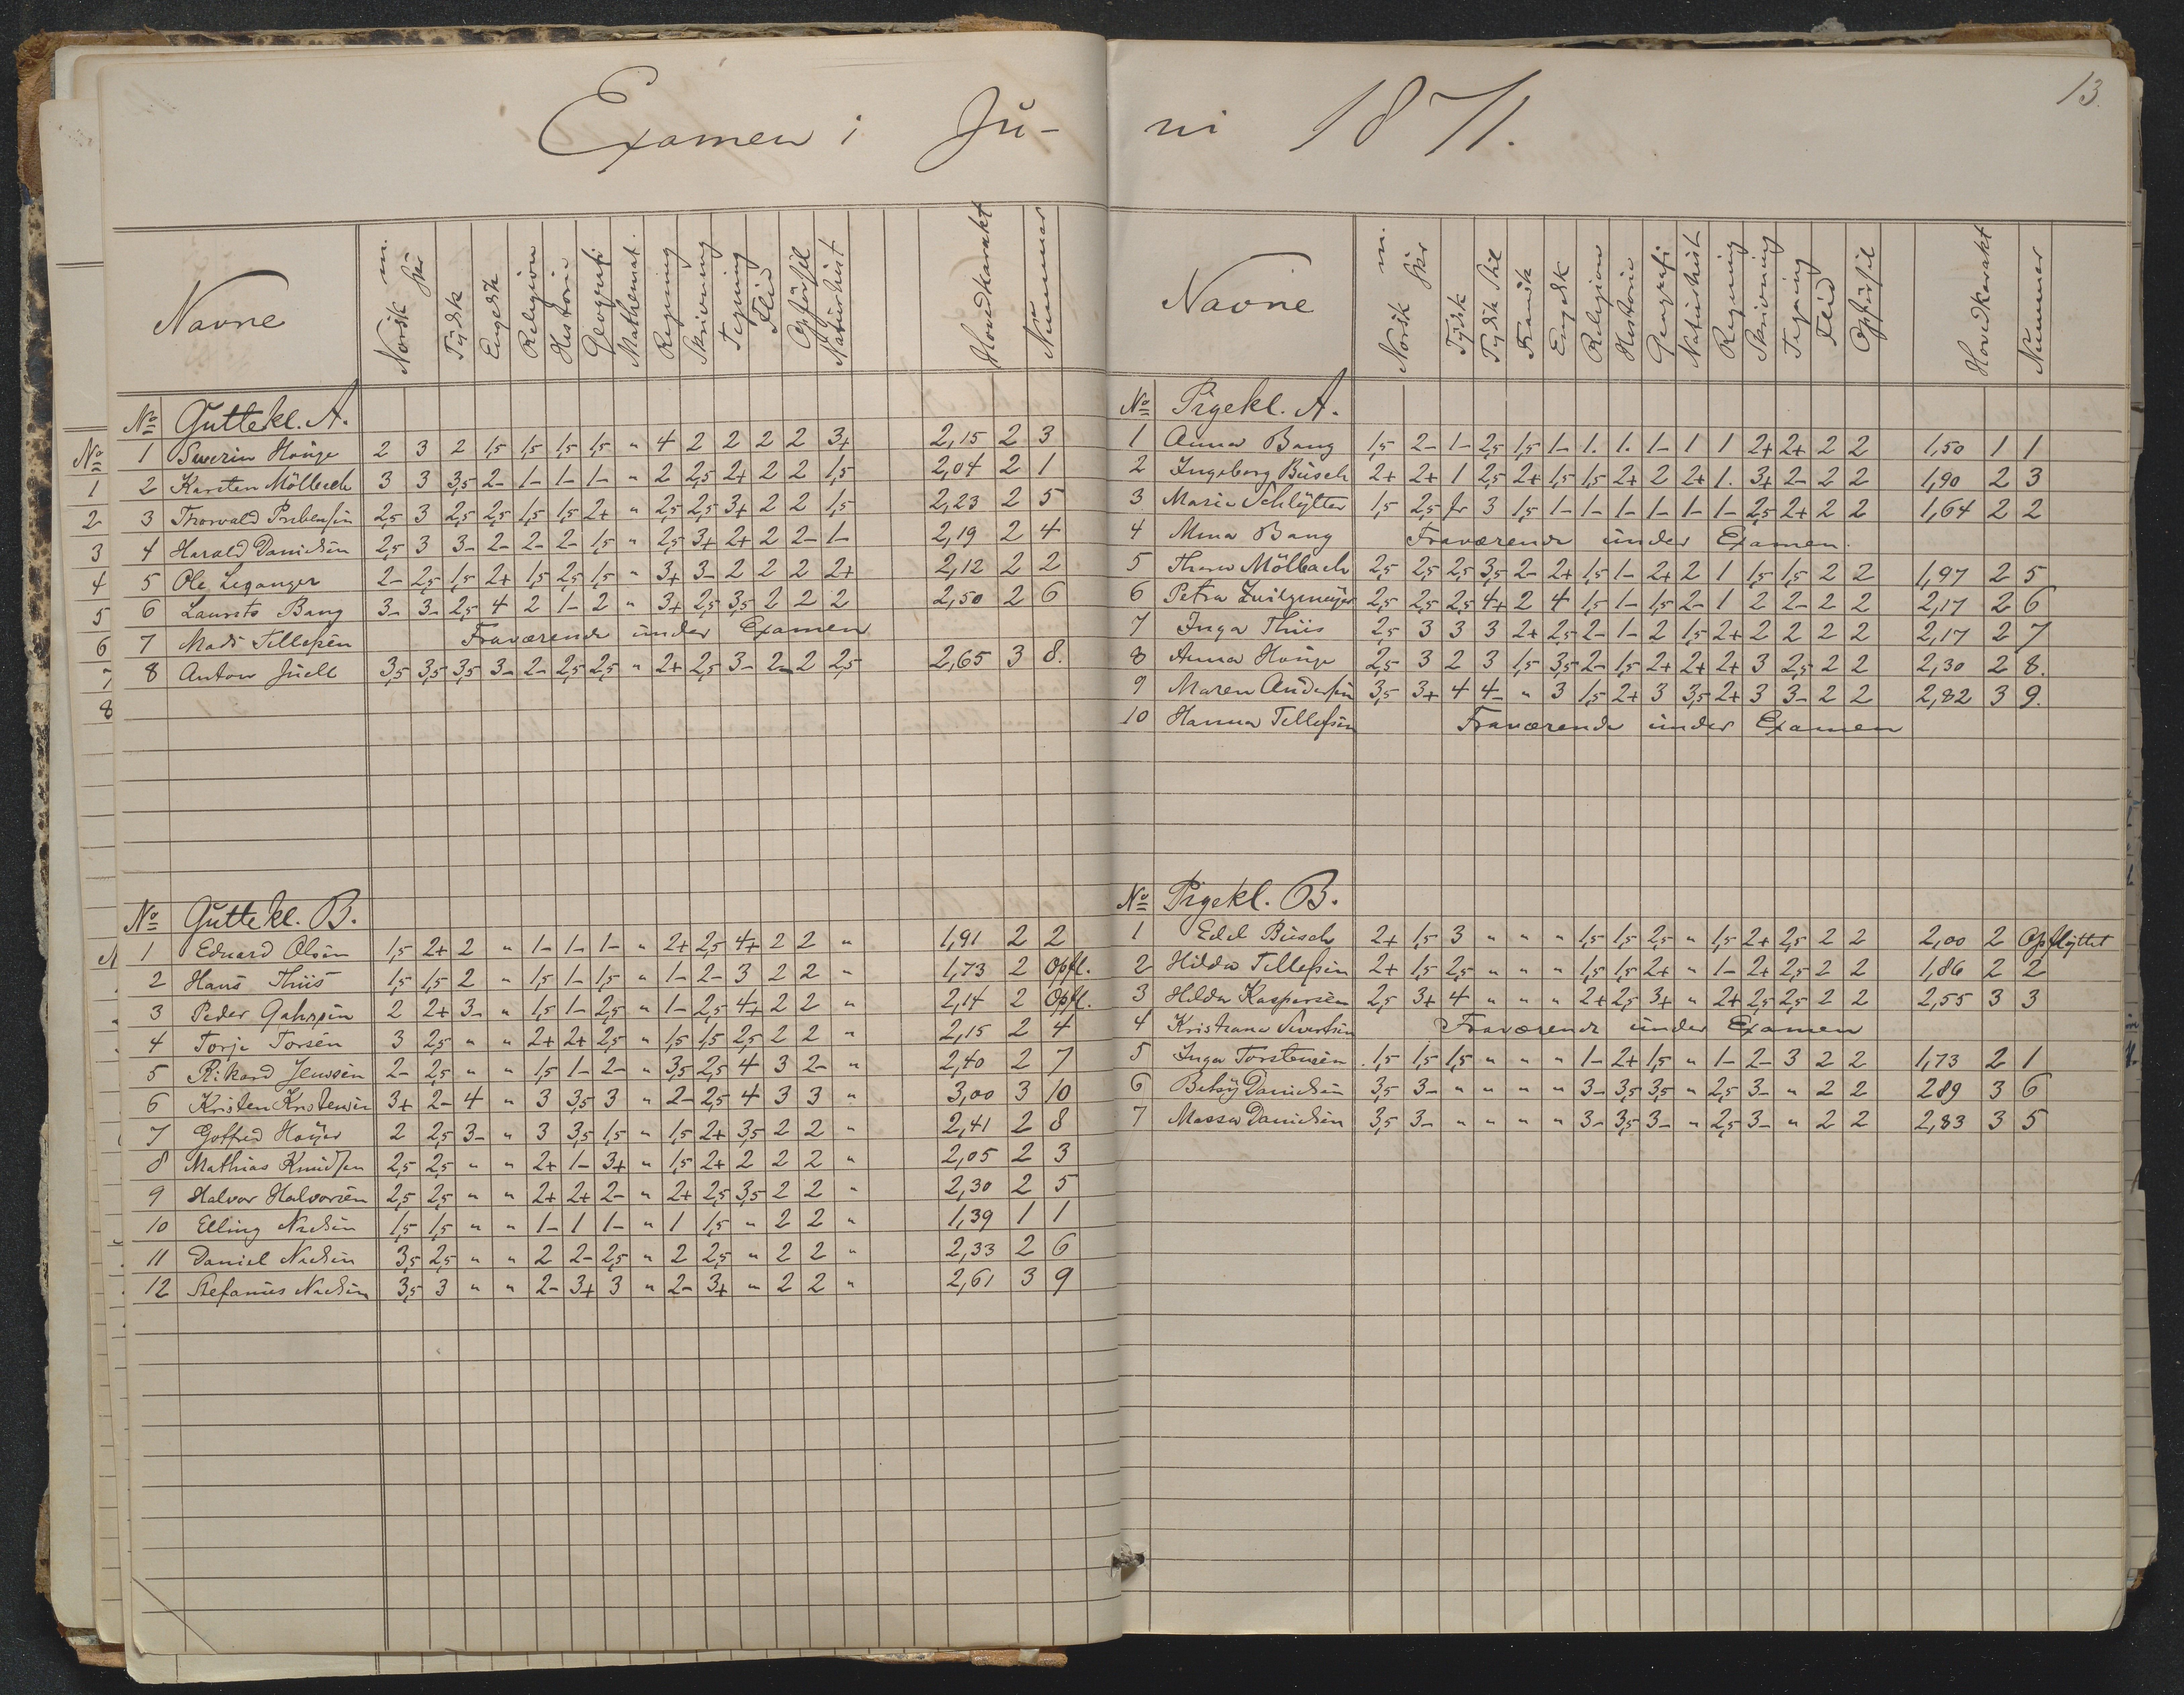 Examen i Ju-
Navne | Norsk m. | skr | Tydsk | Engelsk | Religion | Historie | Geografi | Mathemat. | Regning | Skrivning | Tegning | Flid | Opførsel | Naturhist | Hovedkarakt | Nummer
No Guttekl. A.
1 Severin Houge 2 3 2 1,5 1,5 1,5 1,5 " 4 2 2 2 2 3+ 2,15 2 3
2 Karsten Mölbach 3 3 3,5 2- 1- 1- 1- " 2 2,5 2+ 2 2 1,5 2,04 2 1
3 Thorvald Prebensen 2,5 3 2,5 2,5 1,5 1,5 2+ " 2,5 2,5 3+ 2 2 1,5 2,23 2 5
4 Harald Danielsen 2,5 3 3- 2- 2- 2- 1,5 " 2,5 3+ 2+ 2 2- 1- 2,19 2 4
5 Ole Leganger 2- 2,5 1,5 2+ 1,5 2,5 1,5 " 3+ 3- 2 2 2 2+ 2,12 2 2
6 Laurits Bang 3- 3- 2,5 4 2 1- 2 " 3+ 2,5 3,5 2 2 2 2,50 2 6
7 Mads Tellefsen Fraværende under Examen
8 Anton Juell 3,5 3,5 3,5 3- 2- 2,5 2,5 " 2+ 2,5 3- 2- 2 2,5 2,65 3 8.
No Guttekl. B.
1 Eduard Olsen 1,5 2+ 2 " 1- 1- 1- " 2+ 2,5 4+ 2 2 " 1,91 2 2
2 Hans Thiis 1,5 1,5 2 " 1,5 1- 1,5 " 1- 2- 3 2 2 " 1,73 2 Opfl.
3 Peder Gahrsen 2 2+ 3- " 1,5 1- 2,5 " 1- 2,5 4+ 2 2 " 2,14 2 Opfl.
4 Torje Torsen 3 2,5 " " 2+ 2+ 2,5 " 1,5 1,5 2,5 2 2 " 2,15 2 4
5 Rikard Jensen 2- 2,5 " " 1,5 1- 2- " 3,5 2,5 4 3 2- " 2,40 2 7
6 Kristen Kristensen 3+ 2- 4 " 3 3,5 3 " 2- 2,5 4 3 3 " 3,00 3 10
7 Gotfred Høyer 2 2,5 3- " 3 3,5 1,5 " 1,5 2+ 3,5 2 2 " 2,41 2 8
8 Mathias Knudsen 2,5 2,5 " " 2+ 1- 3+ " 1,5 2+ 2 2 2 " 2,05 2 3
9 Halvor Halvorsen 2,5 2,5 " " 2+ 2+ 2- " 2+ 2,5 3,5 2 2 " 2,30 2 5
10 Elling Nielsen 1,5 1,5 " " 1- 1 1- " 1 1,5 " 2 2 " 1,39 1 1
11 Daniel Nielsen 3,5 2,5 " " 2 2- 2,5 " 2 2,5 " 2 2 " 2,33 2 6
12 Stefanus Nielsen 3,5 3 " " 2- 3+ 3 " 2- 3+ " 2 2 " 2,61 3 9
ni 1871.
13.
Navne | Norsk m. | skr | Tydsk | Tydsk Stil | Fransk | Engelsk | Religion | Historie | Geografi | Naturhist | Regning | Skrivning | Tegning | Flid | Opførsel | Hovedkarakt | Nummer
No Pigekl. A.
1 Anna Bang 1,5 2- 1- 2,5 1,5 1- 1. 1. 1- 1 1 2+ 2+ 2 2 1,50 1 1
2 Ingeborg Busch 2+ 2+ 1 2,5 2+ 1,5 1,5 2+ 2 2+ 1. 3+ 2- 2 2 1,90 2 3
3 Marie Schlytter 1,5 2,5 fr 3 1,5 1- 1- 1- 1- 1- 1- 2,5 2+ 2 2 1,64 2 2
4 Mina Bang Fraværende under Examen.
5 Thora Mölbach 2,5 2,5 2,5 3,5 2- 2+ 1,5 1- 2+ 2 1 1,5 1,5 2 2 1,97 2 5
6 Petra Zwilgmeyer 2,5 2,5 2,5 4+ 2 4 1,5 1- 1,5 2- 1 2 2- 2 2 2,17 2 6
7 Inga Thiis 2,5 3 3 3 2+ 2,5 2- 1- 2 1,5 2+ 2 2 2 2 2,17 2 7
8 Anna Houge 2,5 3 2 3 1,5 3,5 2- 1,5 2+ 2+ 2+ 3 2,5 2 2 2,30 2 8.
9 Maren Andersen 3,5 3+ 4 4- " 3 1,5 2+ 3 3,5 2+ 3 3- 2 2 2,82 3 9.
10 Hanna Tellefsen Fraværende under Examen
No Pigekl. B.
1 Edel Busch 2+ 1,5 3 " " " 1,5 1,5 2,5 " 1,5 2+ 2,5 2 2 2,00 2 Opflyttet
2 Hilda Tellefsen 2+ 1,5 2,5 " " " 1,5 1,5 2+ " 1- 2+ 2,5 2 2 1,86 2 2
3 Hilda Kaspersen 2,5 3+ 4 " " " 2+ 2,5 3+ " 2+ 2,5 2,5 2 2 2,55 3 3
4 Kristiane Sivertsen Fraværende under Examen
5 Inga Torstensen 1,5 1,5 1,5 " " " 1- 2+ 1,5 " 1- 2- 3 2 2 1,73 2 1
6 Betsy Danielsen 3,5 3- " " " " 3- 3,5 3,5 " 2,5 3- " 2 2 2,89 3 6
7 Massa Danielsen 3,5 3- " " " " 3- 3,5 3- " 2,5 3- " 2 2 2,83 3 5